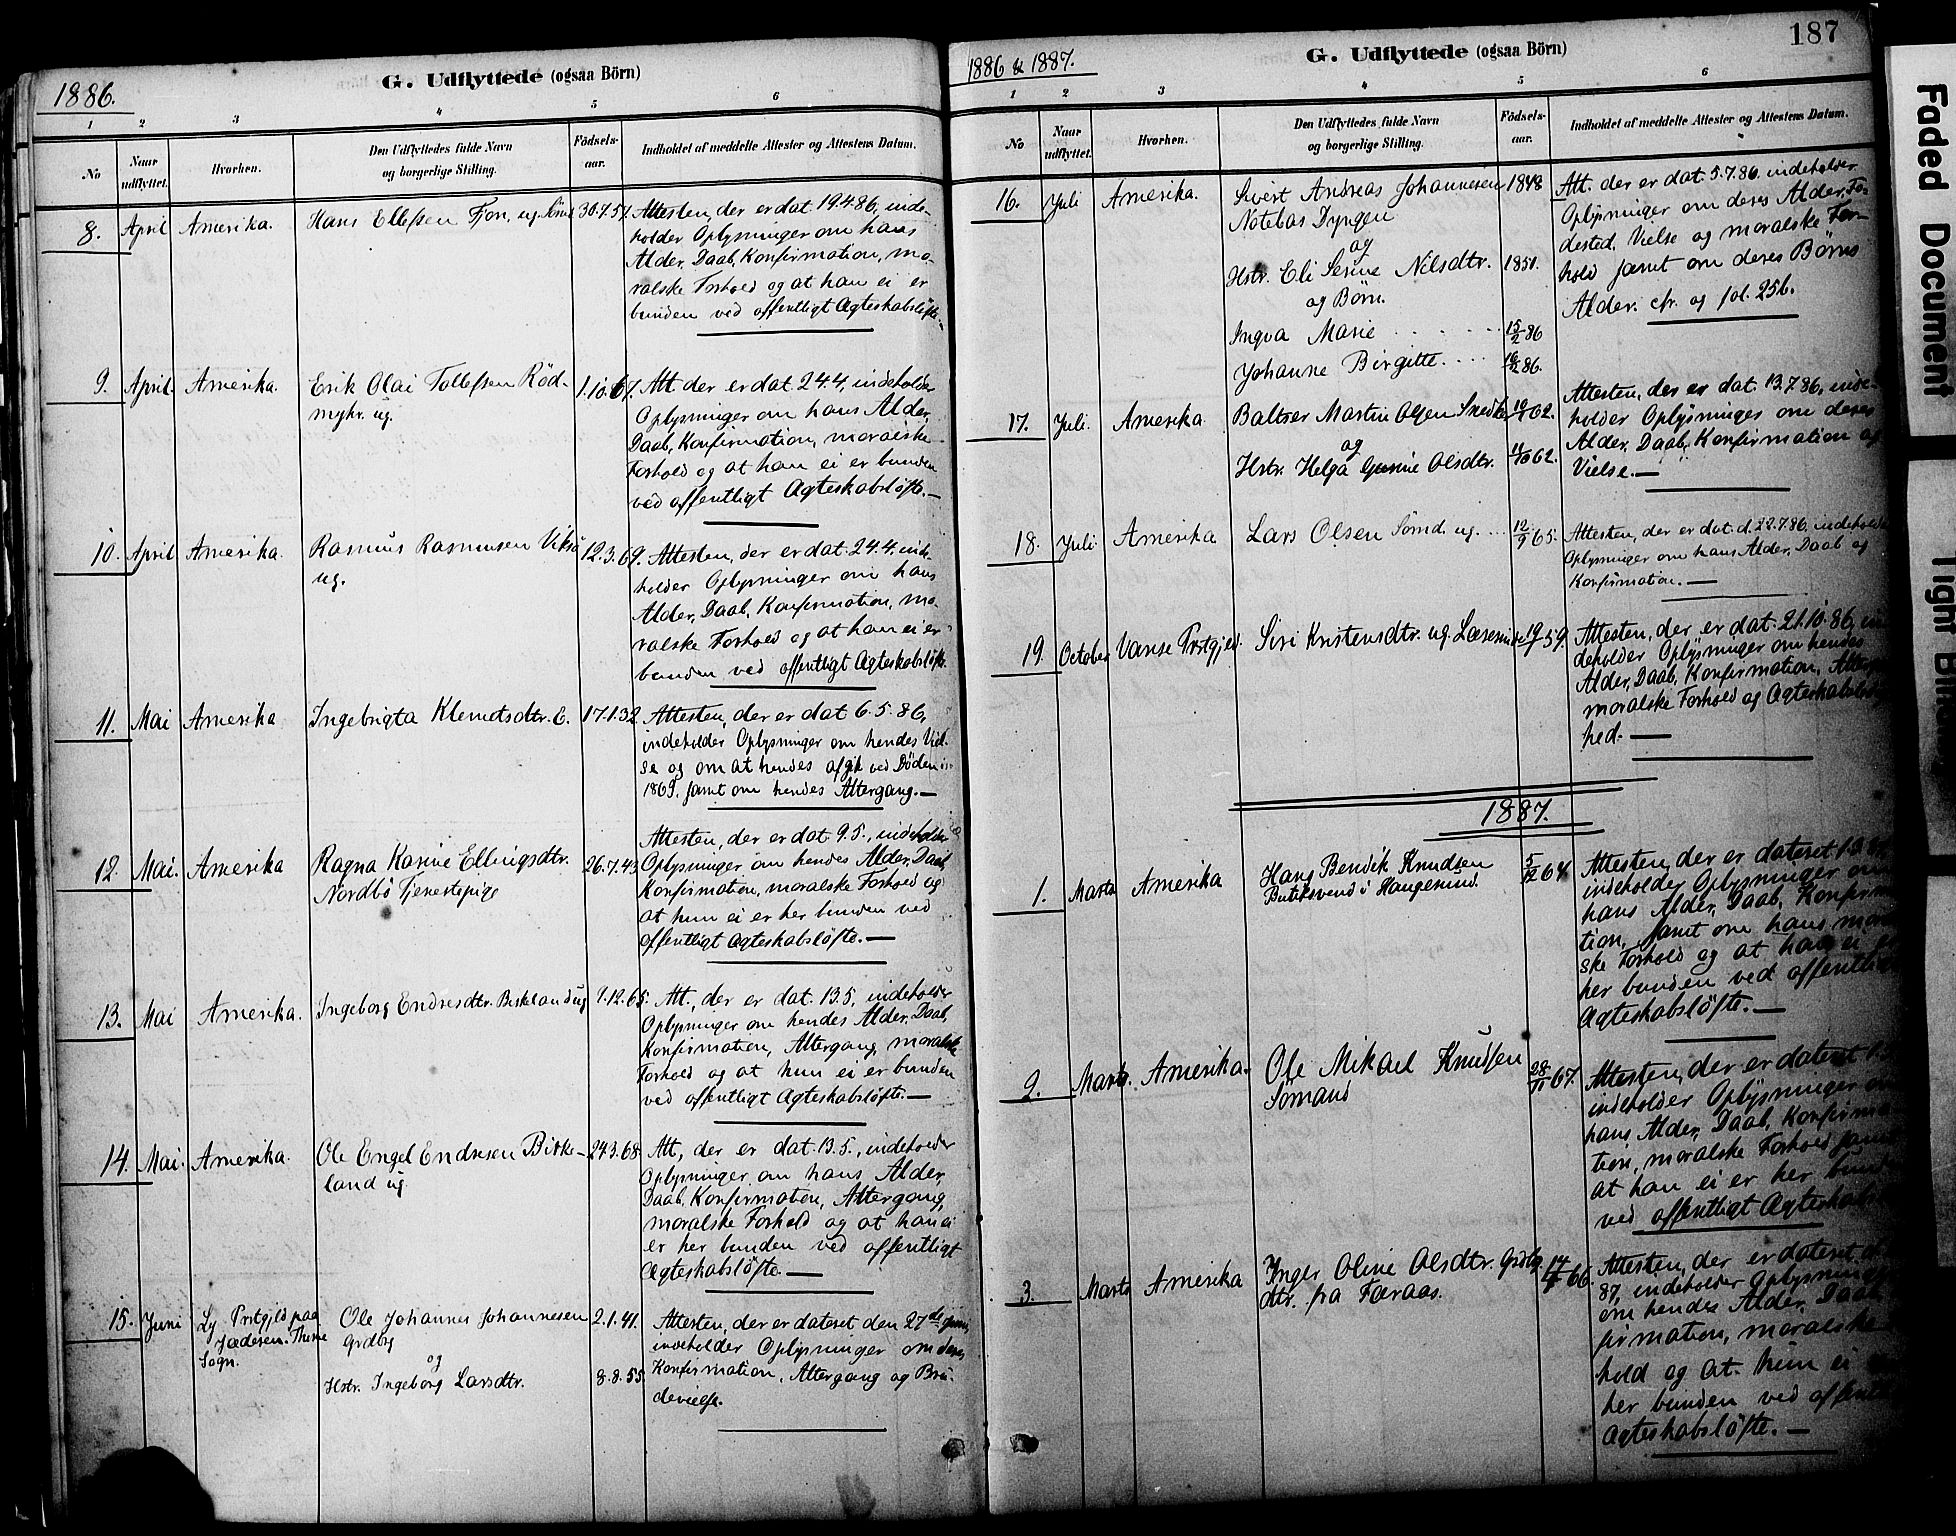 1886.
G. Udflyttede (ogsaa Börn)
1 2 3 4 5 6
No
Naar udflyttet.
Hvorhen.
Den Udflyttedes fulde Navn
og borgerlige Stilling.
Födsels-
aar.
Indholdet af meddelte Attester og Attestens Datum.
8. April Amerika. Hans Ellefsen ug. 30.7.51.
Attesten, der er dat. 19.4.86, inde-
holder Oplysninger om hans
Alder, Daab, Konfirmation, mo-
ralske Forhold og at han ei er
bunden ved offentligt Ægteskabsløfte.
9. April. Amerika. Erik Olai Tollefsen Röd-
myhr. ug.
1.10.67.
Att. der er dat. 24.4, indeholder
Oplysninger om hans Alder,
Daab, Konfirmation, moralske
Forhold og at han ei er bunden
ved offentligt Ægteskabsløfte.—
10. April Amerika. Rasmus Rasmussen
ug.
12.3.69.
Attesten, der er dat. 24.4, inde-
holder Oplysninger om hans
Alder, Daab, Konfirmation, mo-
ralske Forhold og at han ei er
bunden ved offentligt Ægteskabsløfte.
11. Mai Amerika Ingebrigta Klemetsdtr. E. 17.1.32
Attesten, der er dat 6.5.86,
indeholder Oplysninger om hendes Viel-
se og om at hendes afgik ved Döden i
1869. samt om hendes Altergang.—
12. Mai. Amerika Ragna Karine Ellingsdtr.
Nordbö Tjenestepige
26.7.43
Attesten, der er dat. 9.5., indeholder
Oplysninger om hendes Alder, Daab,
Konfirmation, moralske Forhold og
at hun ei er her bunden ved
offentligt Ægteskabsløfte.—
13. Mai Amerika. Ingeborg Endresdtr. Birkeland ug 1.12.65.
Att., der er dat. 13.5, indeholder
Oplysninger om hendes Alder, Daab,
Konfirmation, Altergang, moralske
Forhold og at hun ei er bunden
ved offentligt Ægteskabsløfte.—
14. Mai. Amerika. Ole Engel Endresen Birke-
land ug.
24.3.68.
Att, der er dat. 13.5., indeholder
Oplysninger om hans Alder,
Daab, Konfirmation, Altergang,
moralske Forhold og at han ei
er her bunden ved offentligt
Ægteskabsløfte.—
15. Juni Ly Prstgjld paa
Jæderen. Thime
Sogn.
Ole Johannes Johannesen
Grdbrg
og
Hstr. Ingeborg Larsdtr.
2.1.41.
8.8.55
Attesten, der er dateret den 27de Juni,
indeholder Oplysninger om deres
Konfirmation, Altergang og Bru-
devielse.
187
1886 & 1887.
G. Udflyttede (ogsaa Börn)
1 2 3 4 5 6
No
Naar udflyttet.
Hvorhen.
Den Udflyttedes fulde Navn
og borgerlige Stilling.
Födsels-
aar.
Indholdet af meddelte Attester og Attestens Datum.
16. Juli Amerika. Sivert Andreas Johannesen 1848
Notebas Dyngen
og
Hstr. Eli Serine Nilsdtr. 1851.
og Börn.
Ingva Marie 15/2 86
Johanne Birgitte. 16/2 86.
Att. der er dat. 5.7.86, indeholder
Oplysninger om deres Alder, Fø-
dested, Vielse og moralske For-
hold samt om deres Børns
Alder. cfr. og fol. 256.
17. Juli. Amerika. Baltser Martin Olsen 10/1 62.
og
Hstr. Helga Gurine Olsdtr. 62.
Attesten, der er dat. 13.7.86, inde-
holder Oplysninger om deres
Alder, Daab, Konfirmation og
Vielse.—
18. Juli Amerika Lars Olsen Sömd. ug. 12/9 65.
Attesten, der er dat. d. 22.7.86, indeholder
Oplysninger om hans Alder, Daab og
Konfirmation.—
19. October Vanse Prstgjeld. Siri Kristensdtr. ug. 59.
Attesten, der er dat. 21.10.86, in-
deholder Oplysninger om hendes
Alder, Daab, Konfirmation,
moralske Forhold og
hed.—
1887.
1. Marts Amerika Hans Bendik Knudsen
Butiksvend i Haugesund.
5/12 64.
Attesten, der er dateret
indeholder Oplysninger om
hans Alder, Daab, Konfirma-
tion, samt om hans moral-
ske Forhold og at han ei er
her bunden ved offentligt
Ægteskabsløfte.—
2. Marts. Amerika. Ole Mikael Knudsen
Sömand
28/11 67.
Attesten, der er dateret
indeholder Oplysninger om
hans Alder, Daab, Konfirma-
tion, moralske Forhold samt
at han ei er her bunden
ved offentligt
3. Marts Amerika Inger Oline Olsdtr. Grdbr
dtr. fra Færaas.
66.
Attesten, der er dateret
87, indeholder Oplysninger
om hendes Alder, Daab,
firmation, moralske
hold og at hun ei
her bunden ved offentligt
Ægteskabsløfte.—
Faded Document
Tight